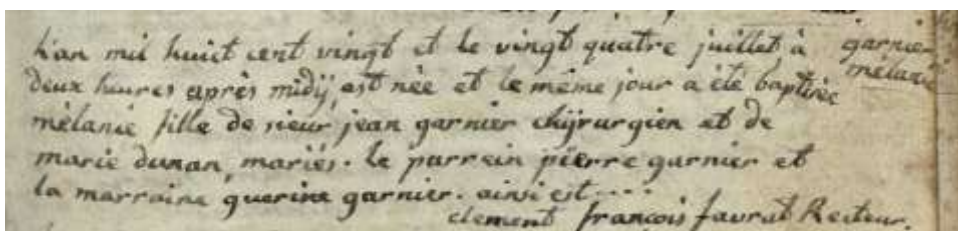 L'an mil huit cent vingt et le vingt quatre juillet à
deux heures après midÿ, est née et le même jour a été baptisée
mélanie fille de sieur jean garnier chÿrurgien et de
marie dunan, mariés. le parrein pierre garnier et
la marraine guerine garnier. ainsi est....
clement françois favrat Recteur.
garnier
mélanie